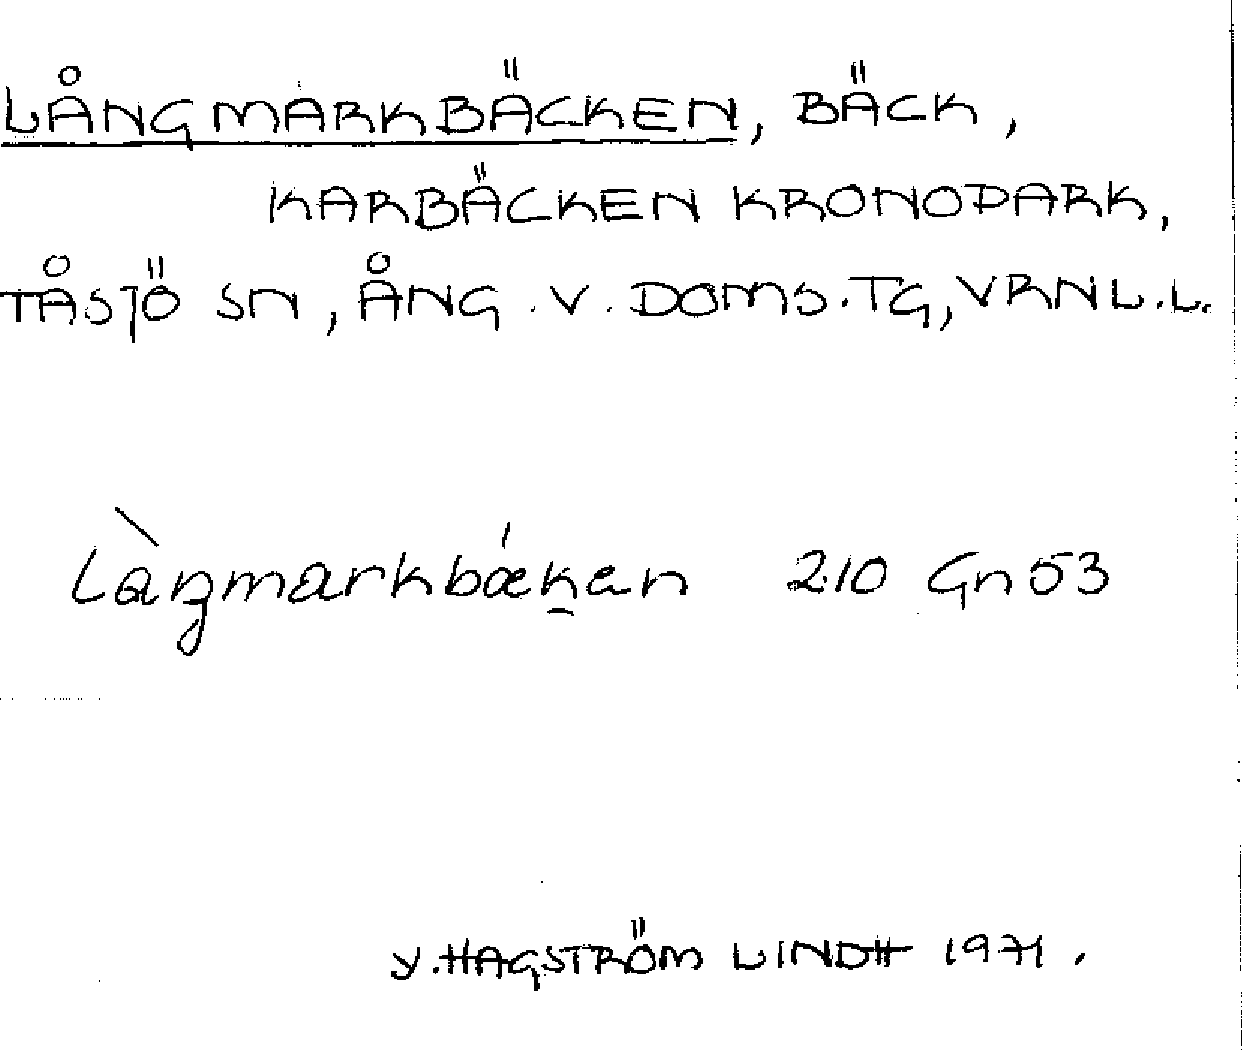 LÅNGMARKBÄCKEN, BÄCK,
KARBÄCKEN KRONOPARK,
TÅSJÖ SN, ÅNG. V. DOMS.TG, VRNL.L.
Làŋmarkbǽk̯an 210 Gn53
Y. HAGSTRÖM LINDH 1971.